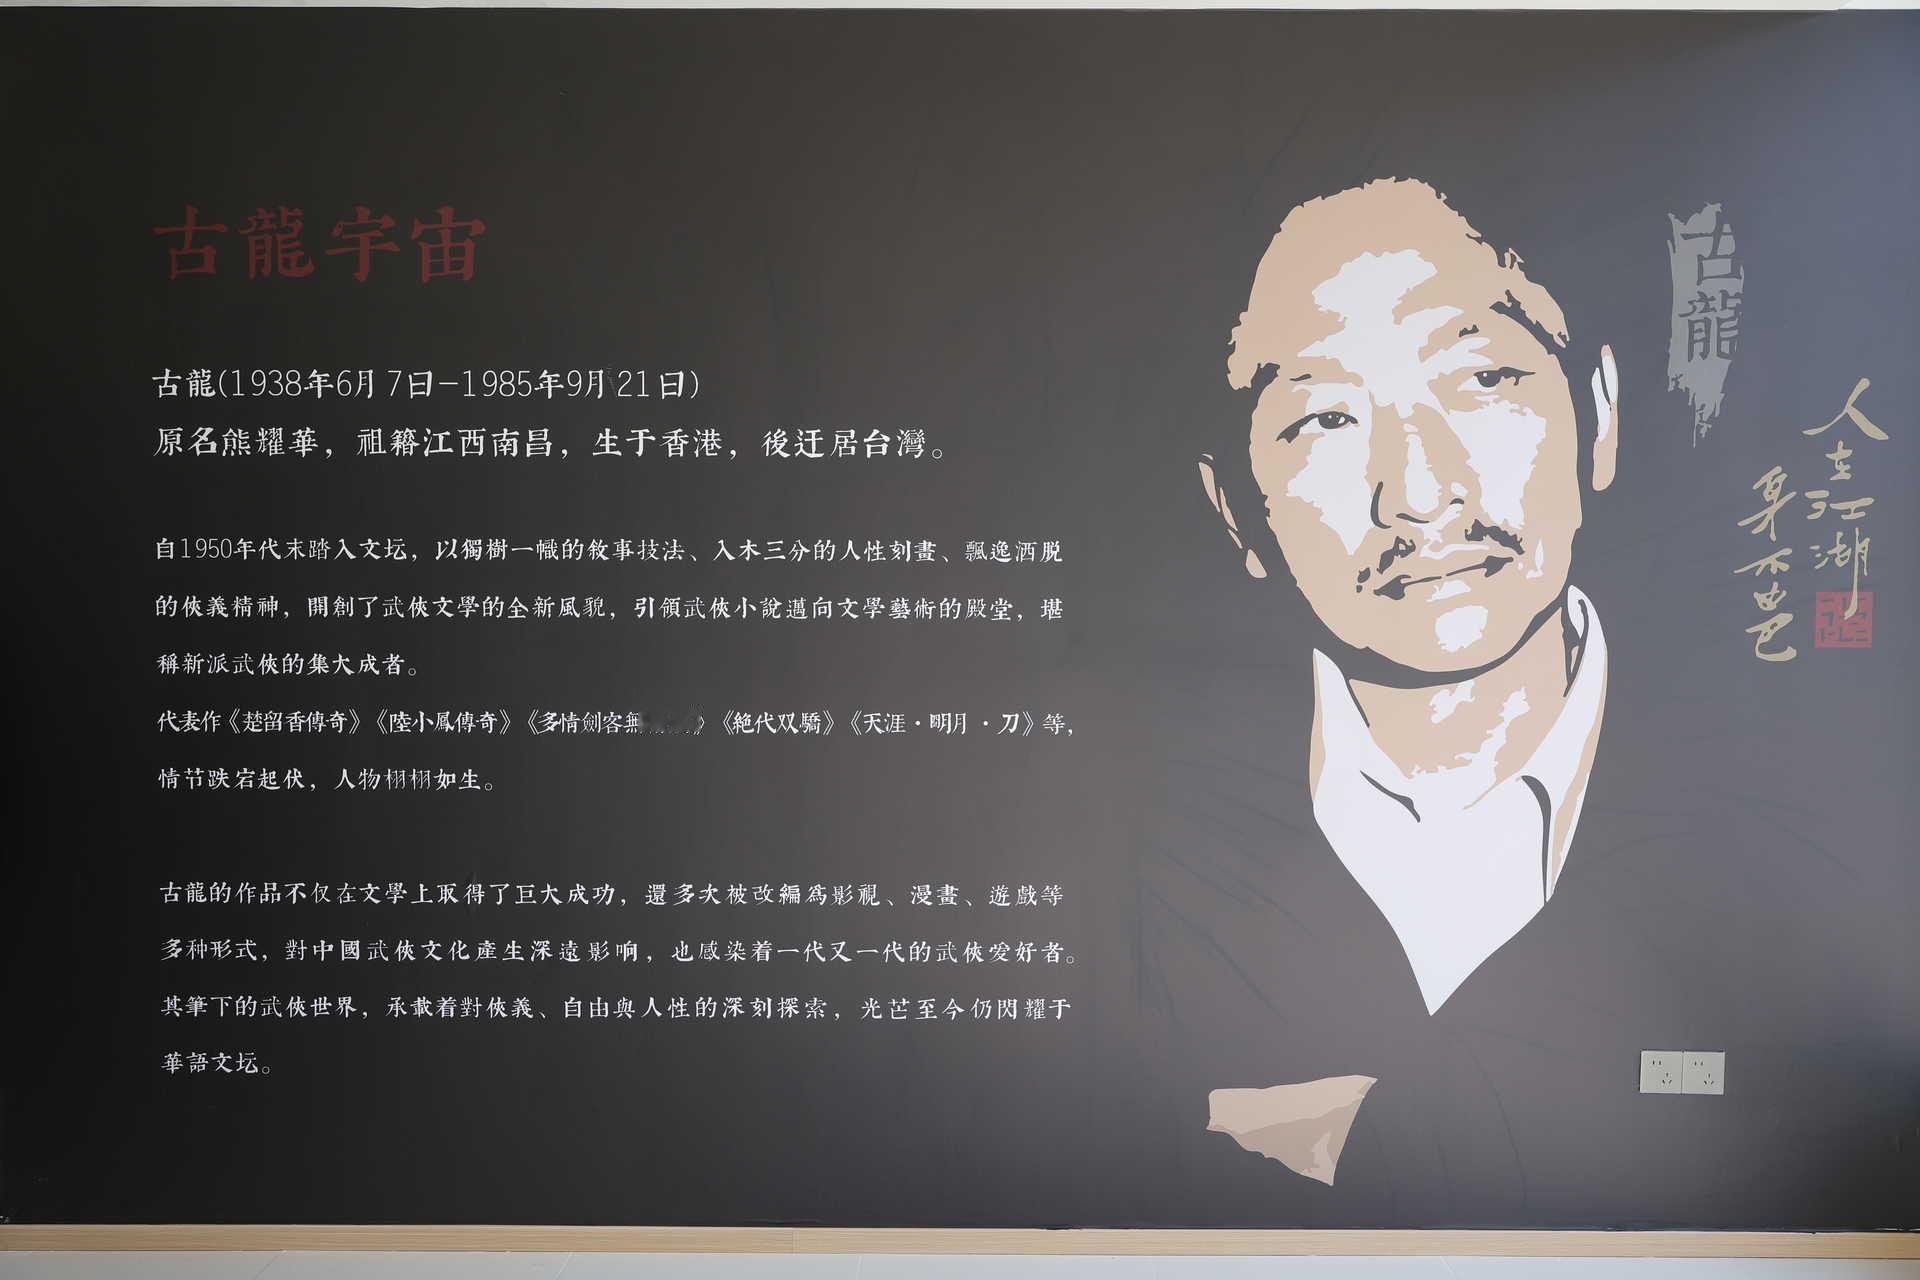 古龍宇宙
古龍(1938年6月7日-1985年9月21日)
原名熊耀華，祖籍江西南昌，生于香港，後迁居台灣。
自1950年代末踏入文坛，以獨樹一幟的敘事技法、入木三分的人性刻畫、飄逸洒脱
的俠義精神，開創了武俠文學的全新風貌，引領武俠小說邁向文學藝術的殿堂，堪
稱新派武俠的集大成者。
代表作《楚留香傳奇》《陸小鳳傳奇》《多情劍客無》《絕代双驕》《天涯·明月·刀》等，
情节跌宕起伏，人物栩栩如生。
古龍的作品不仅在文學上取得了巨大成功，還多次被改編為影視、漫畫、遊戲等
多种形式，對中國武俠文化產生深遠影响，也感染着一代又一代的武俠爱好者。
其筆下的武俠世界，承載着對俠義、自由與人性的深刻探索，光芒至今仍閃耀于
華語文坛。
古龍
人在江湖
身不由己